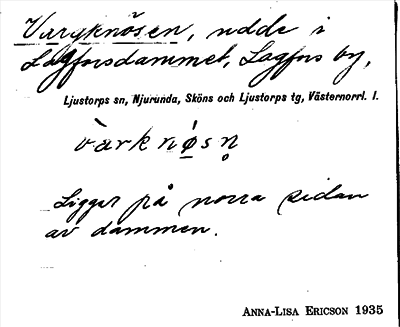 Varyknösen, udde i
Lagforsdammet, Lagfors by,
Ljustorps sn, Njurunda, Sköns och Ljustorps tg, Västernorrl. l.
vàrknø̱sn̥
Ligger på norra sidan
av dammen.
ANNA-LISA ERICSON 1935